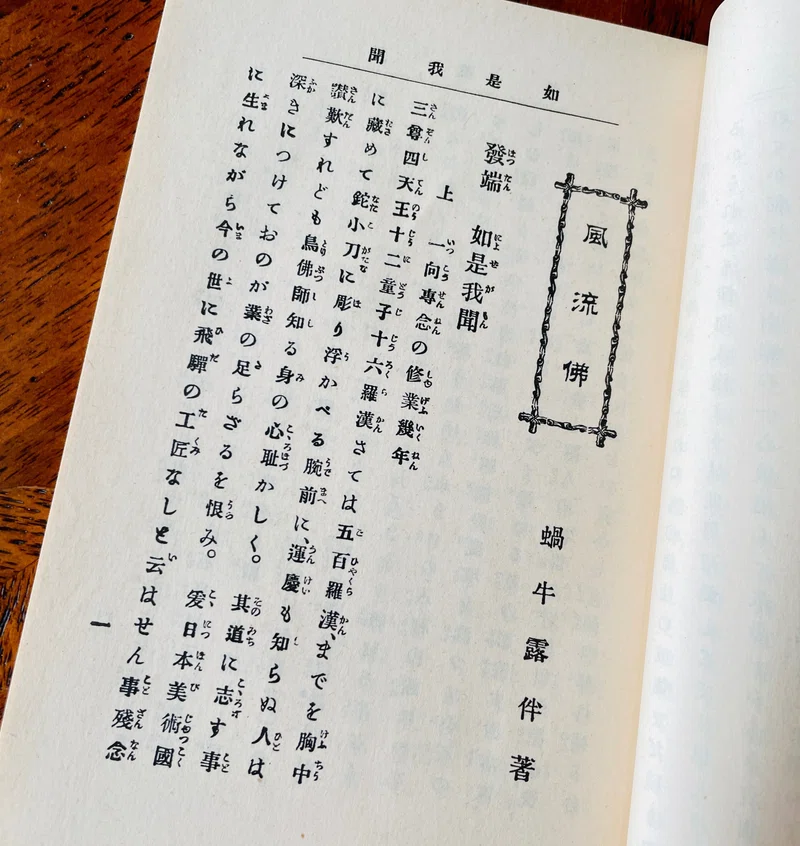 如是我聞
風流佛
蝸牛露伴著
發端 如是我聞
上 一向專念の修業幾年
三尊四天王十二童子十六羅漢さては五百羅漢、までを胸中
に藏めて鉈小刀に彫り浮かべる腕前に、運慶も知らぬ人は
讃歎すれども鳥佛師知る身の心耻かしく。其道に志す事
深きにつけておのが業の足らざるを恨み。爰日本美術國
に生れながら今の世に飛驒の工匠なしと云はせん事殘念
一